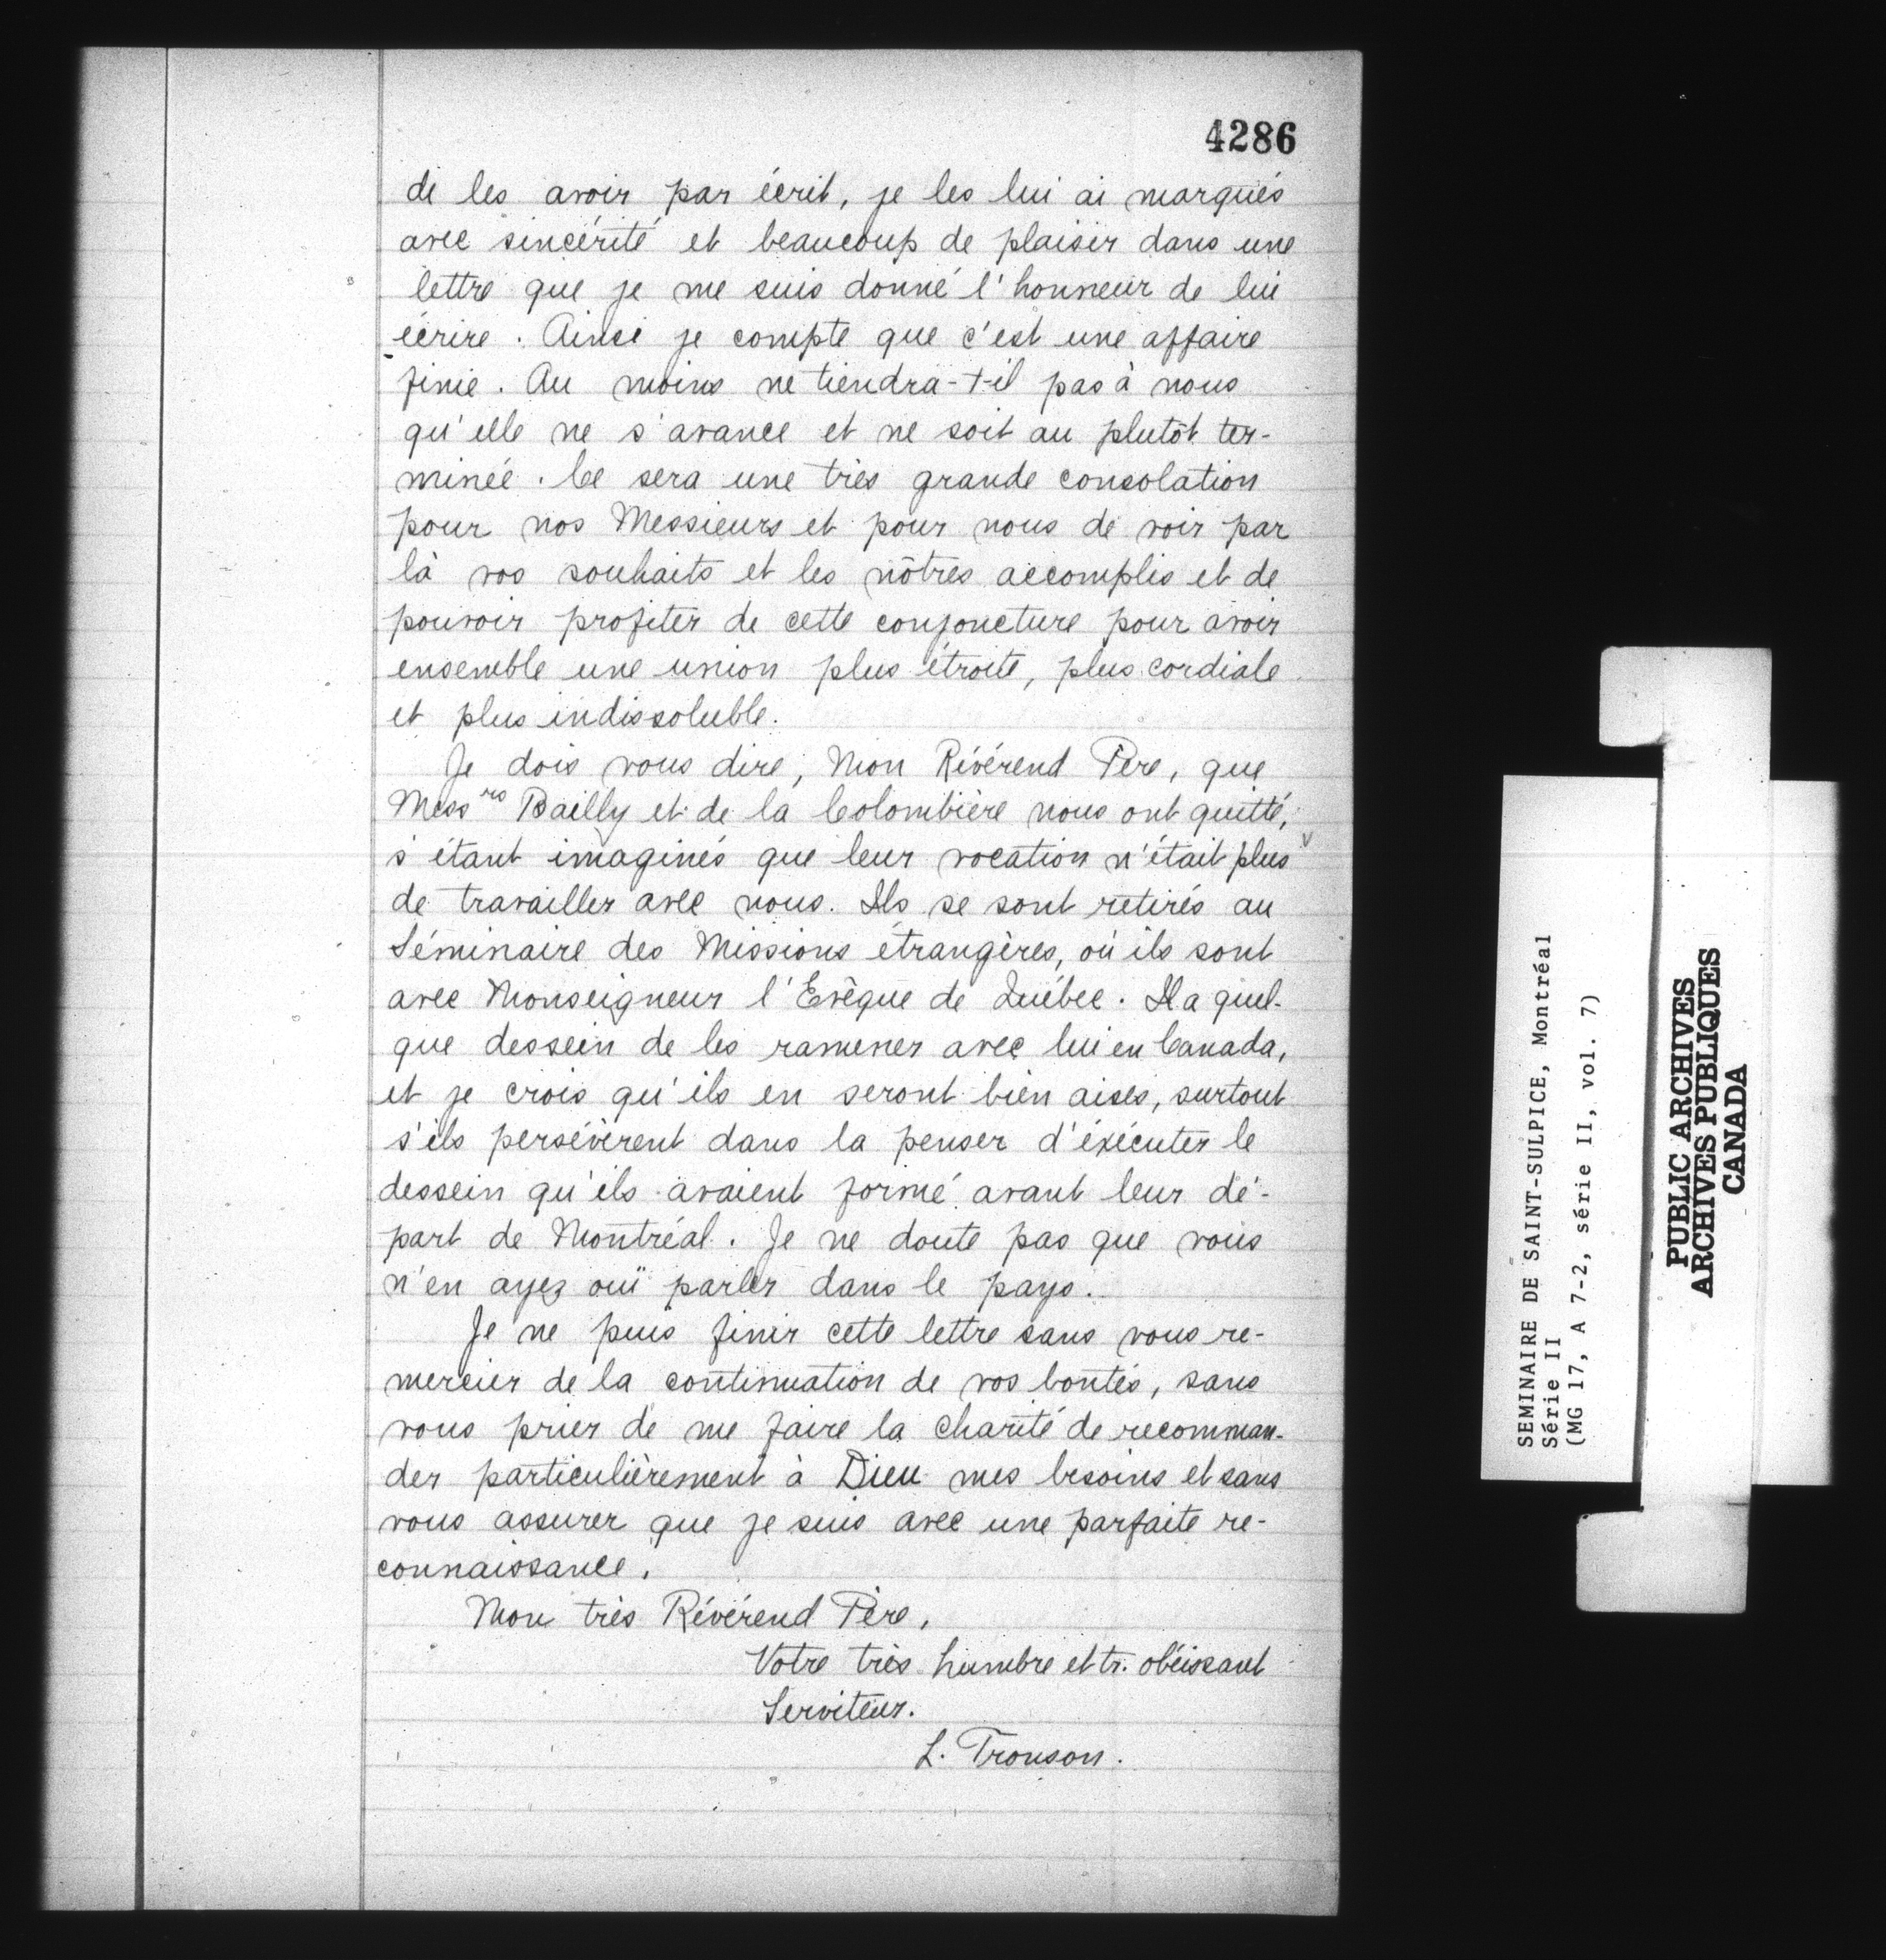 4286
de les avoir par écrit, je les lui ai marqués
avec sincérité et beaucoup de plaisir dans une
lettre que je me suis donné l'honneur de lui
écrire. Ainsi je compte que c'est une affaire
finie. Au moins ne tiendra-t-il pas à nous
qu'elle ne s'avance et ne soit au plutôt ter-
minée. Ce sera une très grande consolation
pour nos Messieurs et pour nous de voir par
là vos souhaits et les nôtres accomplis et de
pouvoir profiter de cette conjoncture pour avoir
ensemble une union plus étroite, plus cordiale
et plus indissoluble.
Je dois vous dire, Mon Révérend Père, que
Messrs Bailly et de la Colombière nous ont quitté,
s'étant imaginés que leur vocation n'était plus
de travailler avec nous. Ils se sont retirés au
Séminaire des Missions étrangères, où ils sont
avec Monseigneur l'Evêque de Québec. Il a quel-
que dessein de les ramener avec lui en Canada,
et je crois qu'ils en seront bien aises, surtout
s'ils persévèrent dans la penser d'éxécuter le
dessein qu'ils avaient formé avant leur dé-
part de Montréal. Je ne doute pas que vous
n'en ayez ouï parler dans le pays.
Je ne puis finir cette lettre sans vous re-
mercier de la continuation de vos bontés, sans
vous prier de me faire la charité de recomman-
der particulièrement à Dieu mes besoins et sans
vous assurer que je suis avec une parfaite re-
connaissance,
Mon très Révérend Père,
Votre très humbre et tr. obéissant
Serviteur.
L. Tronson.
SEMINAIRE DE SAINT-SULPICE, Montréal
Série II
(MG 17, A 7-2, série II, vol. 7)
PUBLIC ARCHIVES
ARCHIVES PUBLIQUES
CANADA